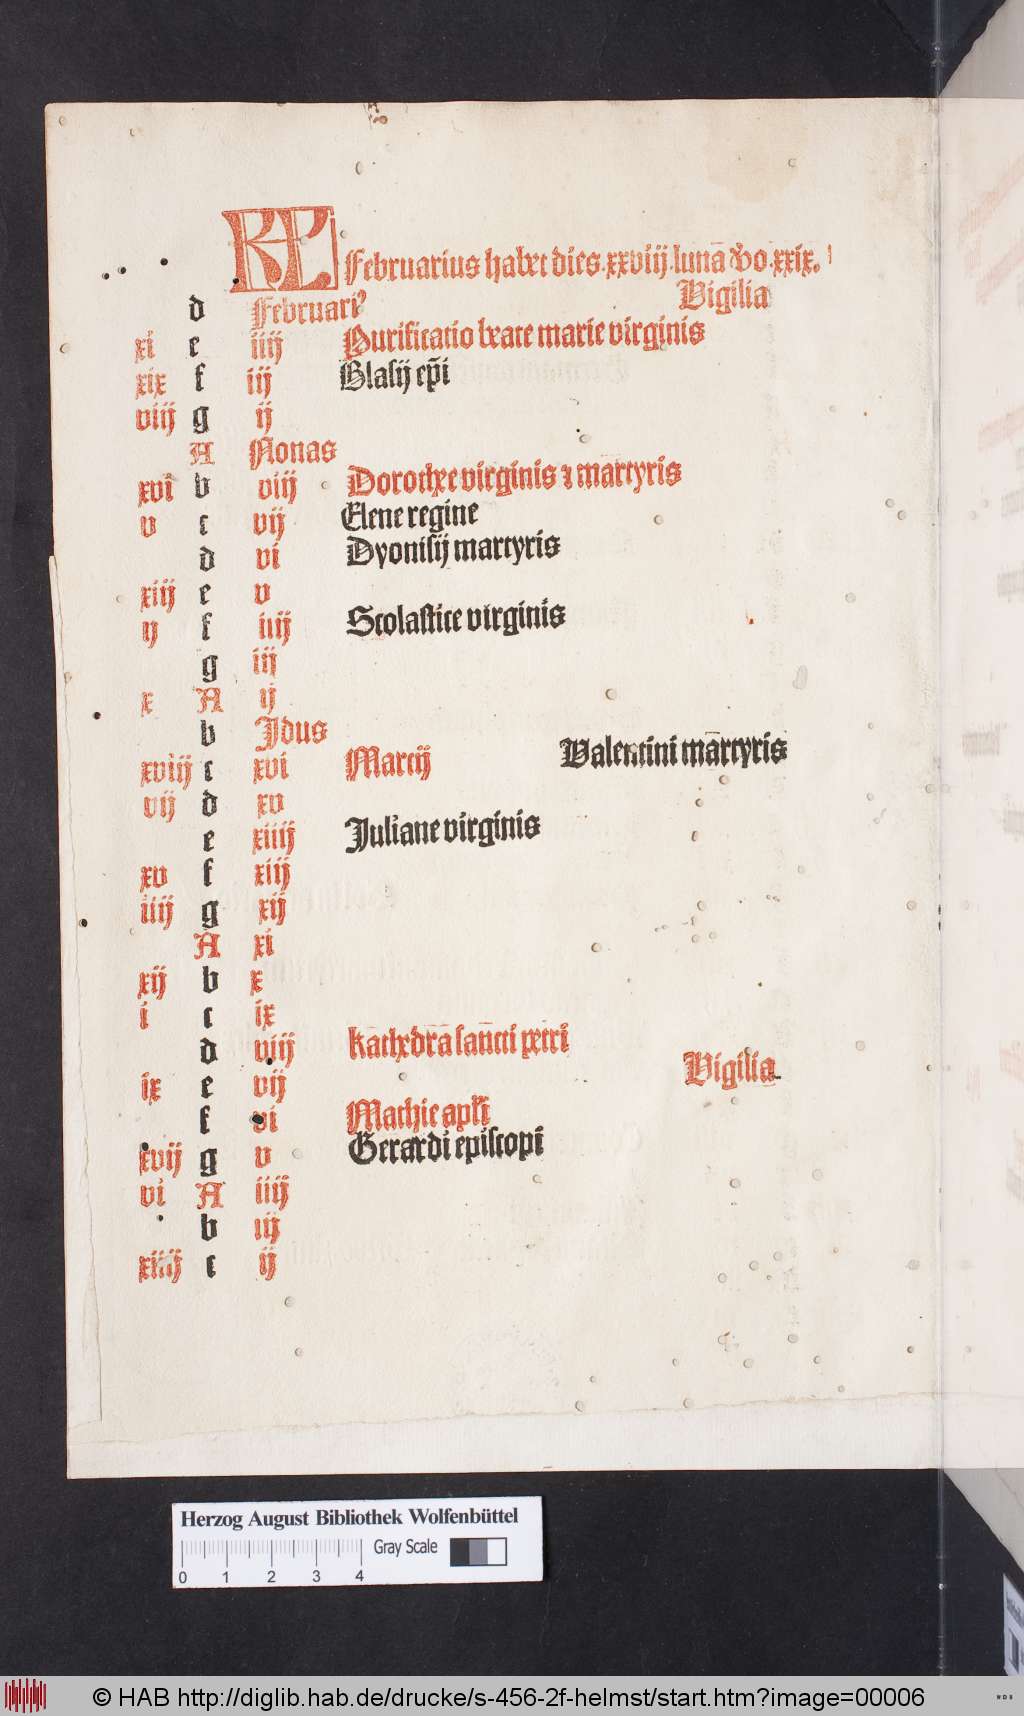 KL Februarius habet dies .xxviij. lunā v̈o .xxix.
d Februariꝰ Vigilia
xi e iiij Purificatio beate marie virginis
xix f iij Blasij ep̄i
viij g ij
A Nonas
xvi b viij Dorothee virginis ⁊ martyris
v c vij Elene regine
d vi Dyonisij martyris
xiij e v
ij f iiij Scolastice virginis
g iij
x A ij
b Idus
xviij c xvi Marcij Valentini mārtyris
vij d xv
e xiiij Juliane virginis
xv f xiij
iiij g xij
A xi
xij b x
i c ix
d viij kāthedrā sancti petri
ix e vij Vigilia
f vi Mathie apl̄i
xvij g v Gerardi episcopi
vi A iiij
b iij
xiiij c ij
Herzog August Bibliothek Wolfenbüttel
Gray Scale
0 1 2 3 4
© HAB http://diglib.hab.de/drucke/s-456-2f-helmst/start.htm?image=00006